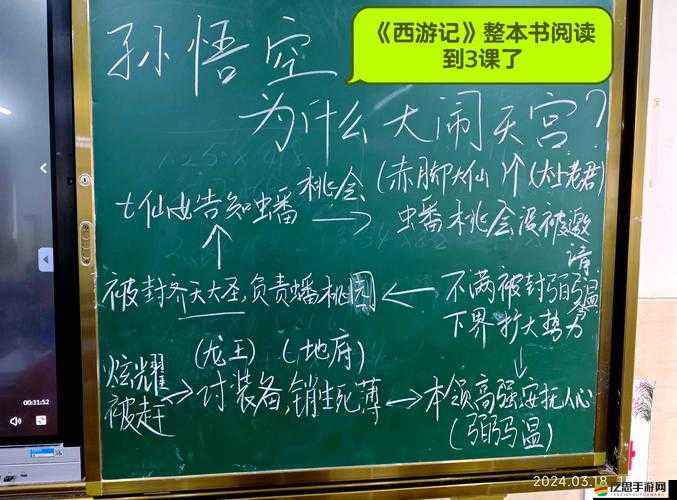 《西游记》整本书阅读
到3课了
孙悟空
为什么大闹天宫?
七仙女告知蟠桃会 → 蟠桃会没被邀请
(赤脚大仙) ↑ (太上老君)
↑
被封齐天大圣,负责蟠桃园 ← 不满被封弼马温
下界扩大势力
↓
炫耀
被赶 → 讨装备,销生死薄 → 本领高强安抚人心
(龙王) (地府)
(弼马温)
00:31:52
2024.03.18
亿思手游网